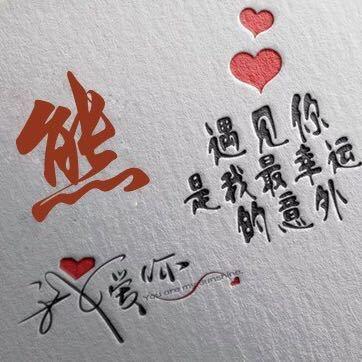 熊
遇见你
是我最幸运
的意外
我爱你
You are my sunshine